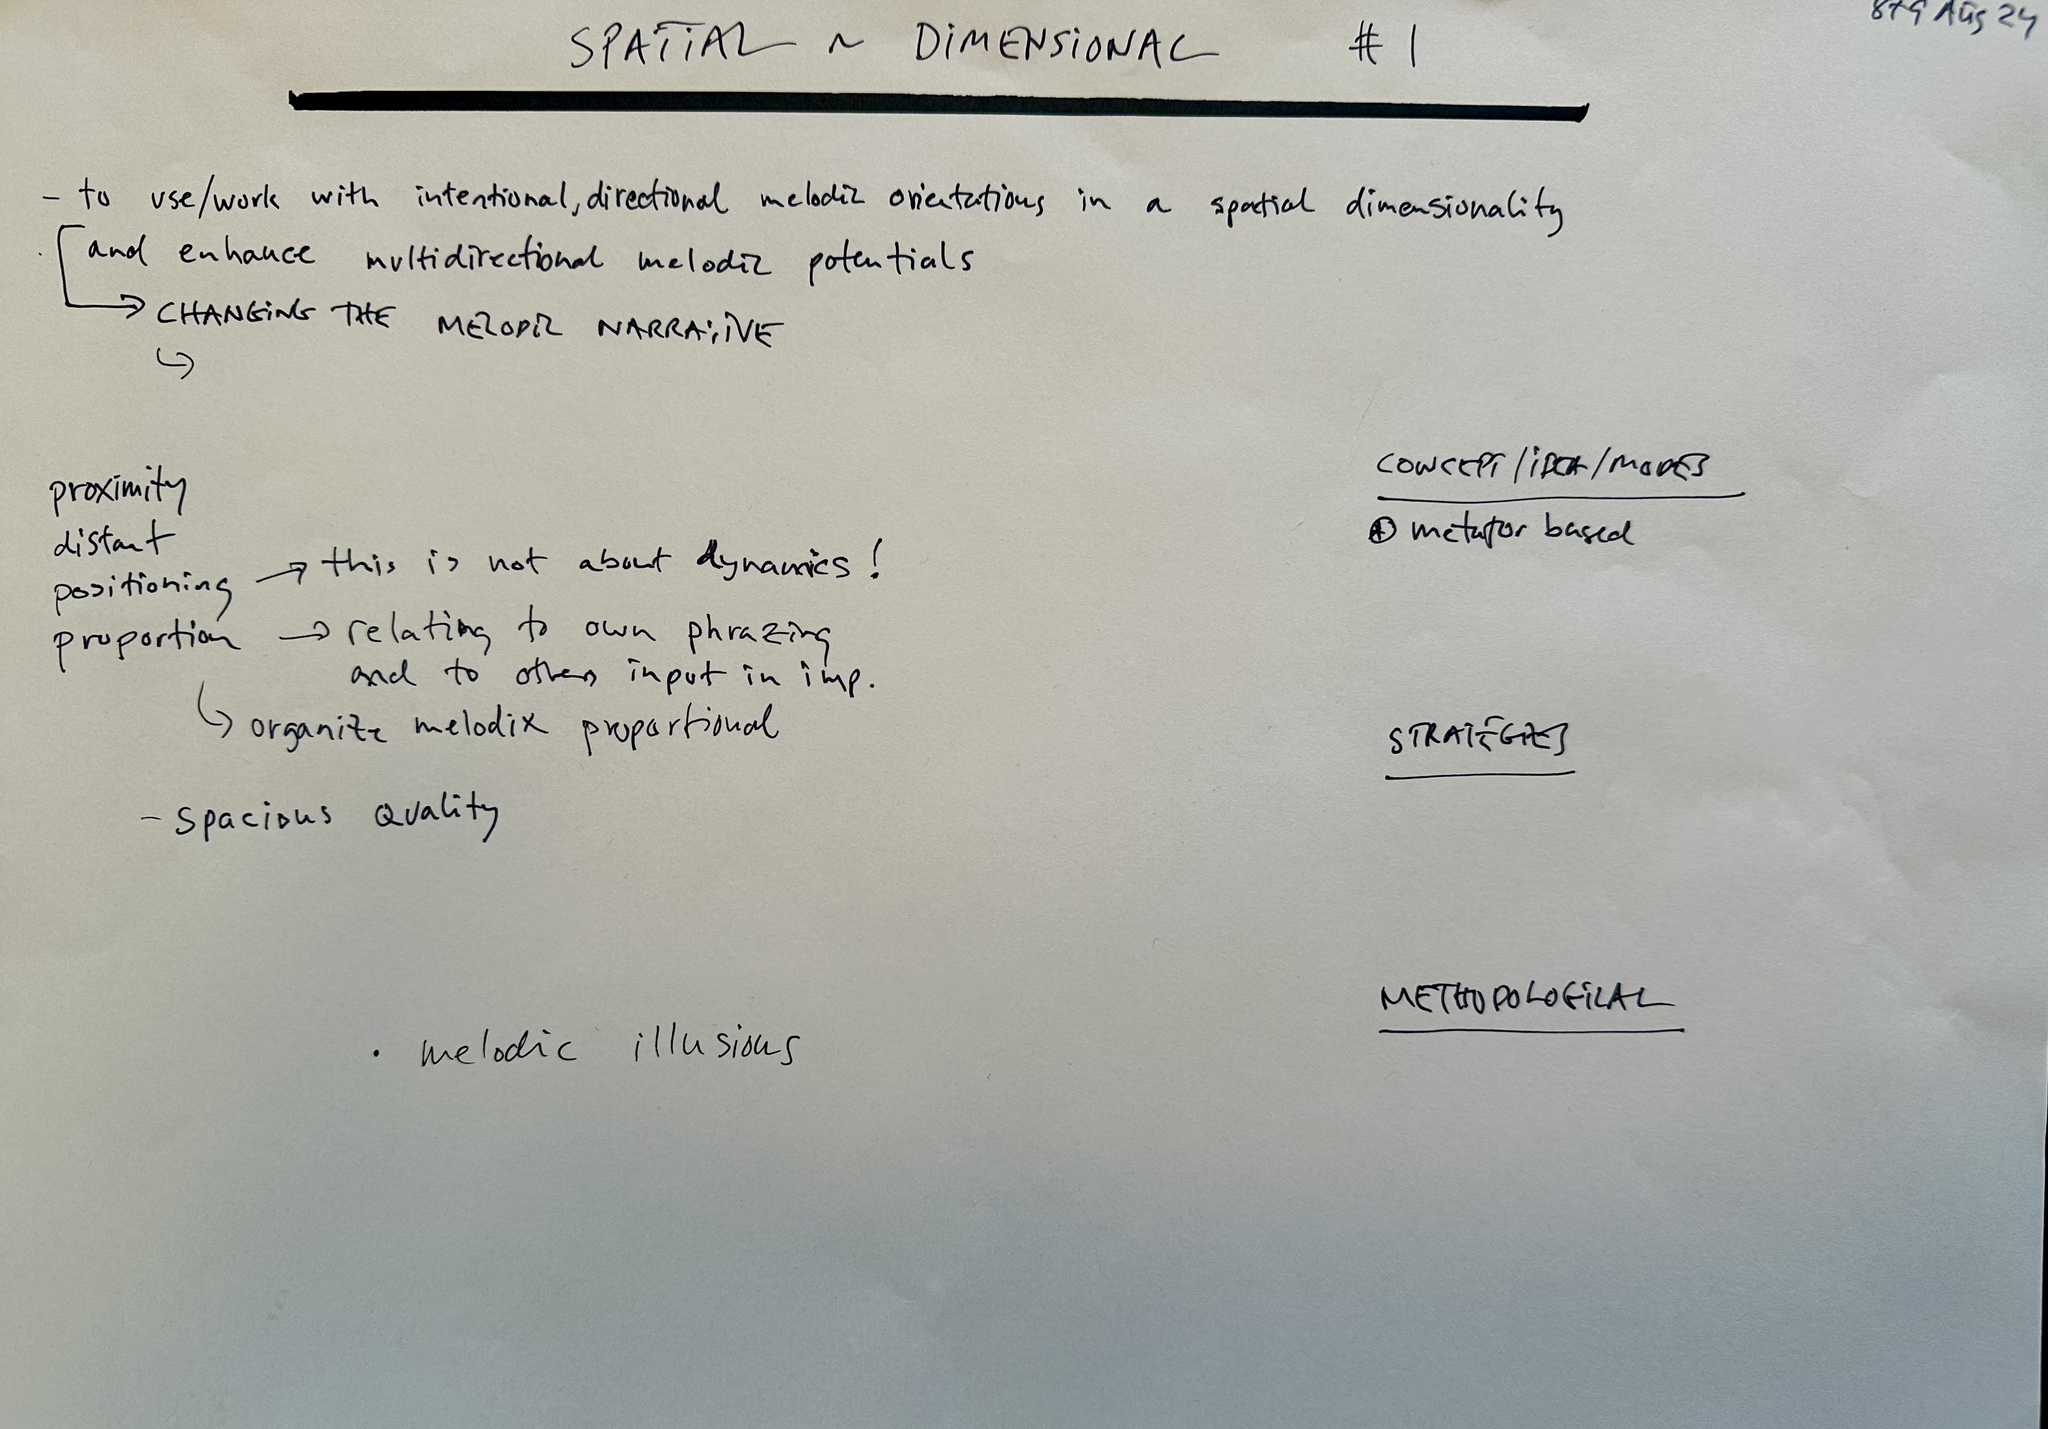 8+9 Aug 24
SPATIAL ~ DIMENSIONAL #1
- to use/work with intentional, directional melodic orientations in a spatial dimensionality
and enhance multidirectional melodic potentials
→ CHANGING THE MELODIC NARRATIVE
↳
proximity
distant
positioning → this is not about dynamics!
proportion → relating to own phrazing
and to others input in imp.
↳ organize melodix proportional
- spacious quality
• melodic illusions
CONCEPT/IDEA/MODES
⊕ metafor based
STRATEGIES
METHODOLOGICAL